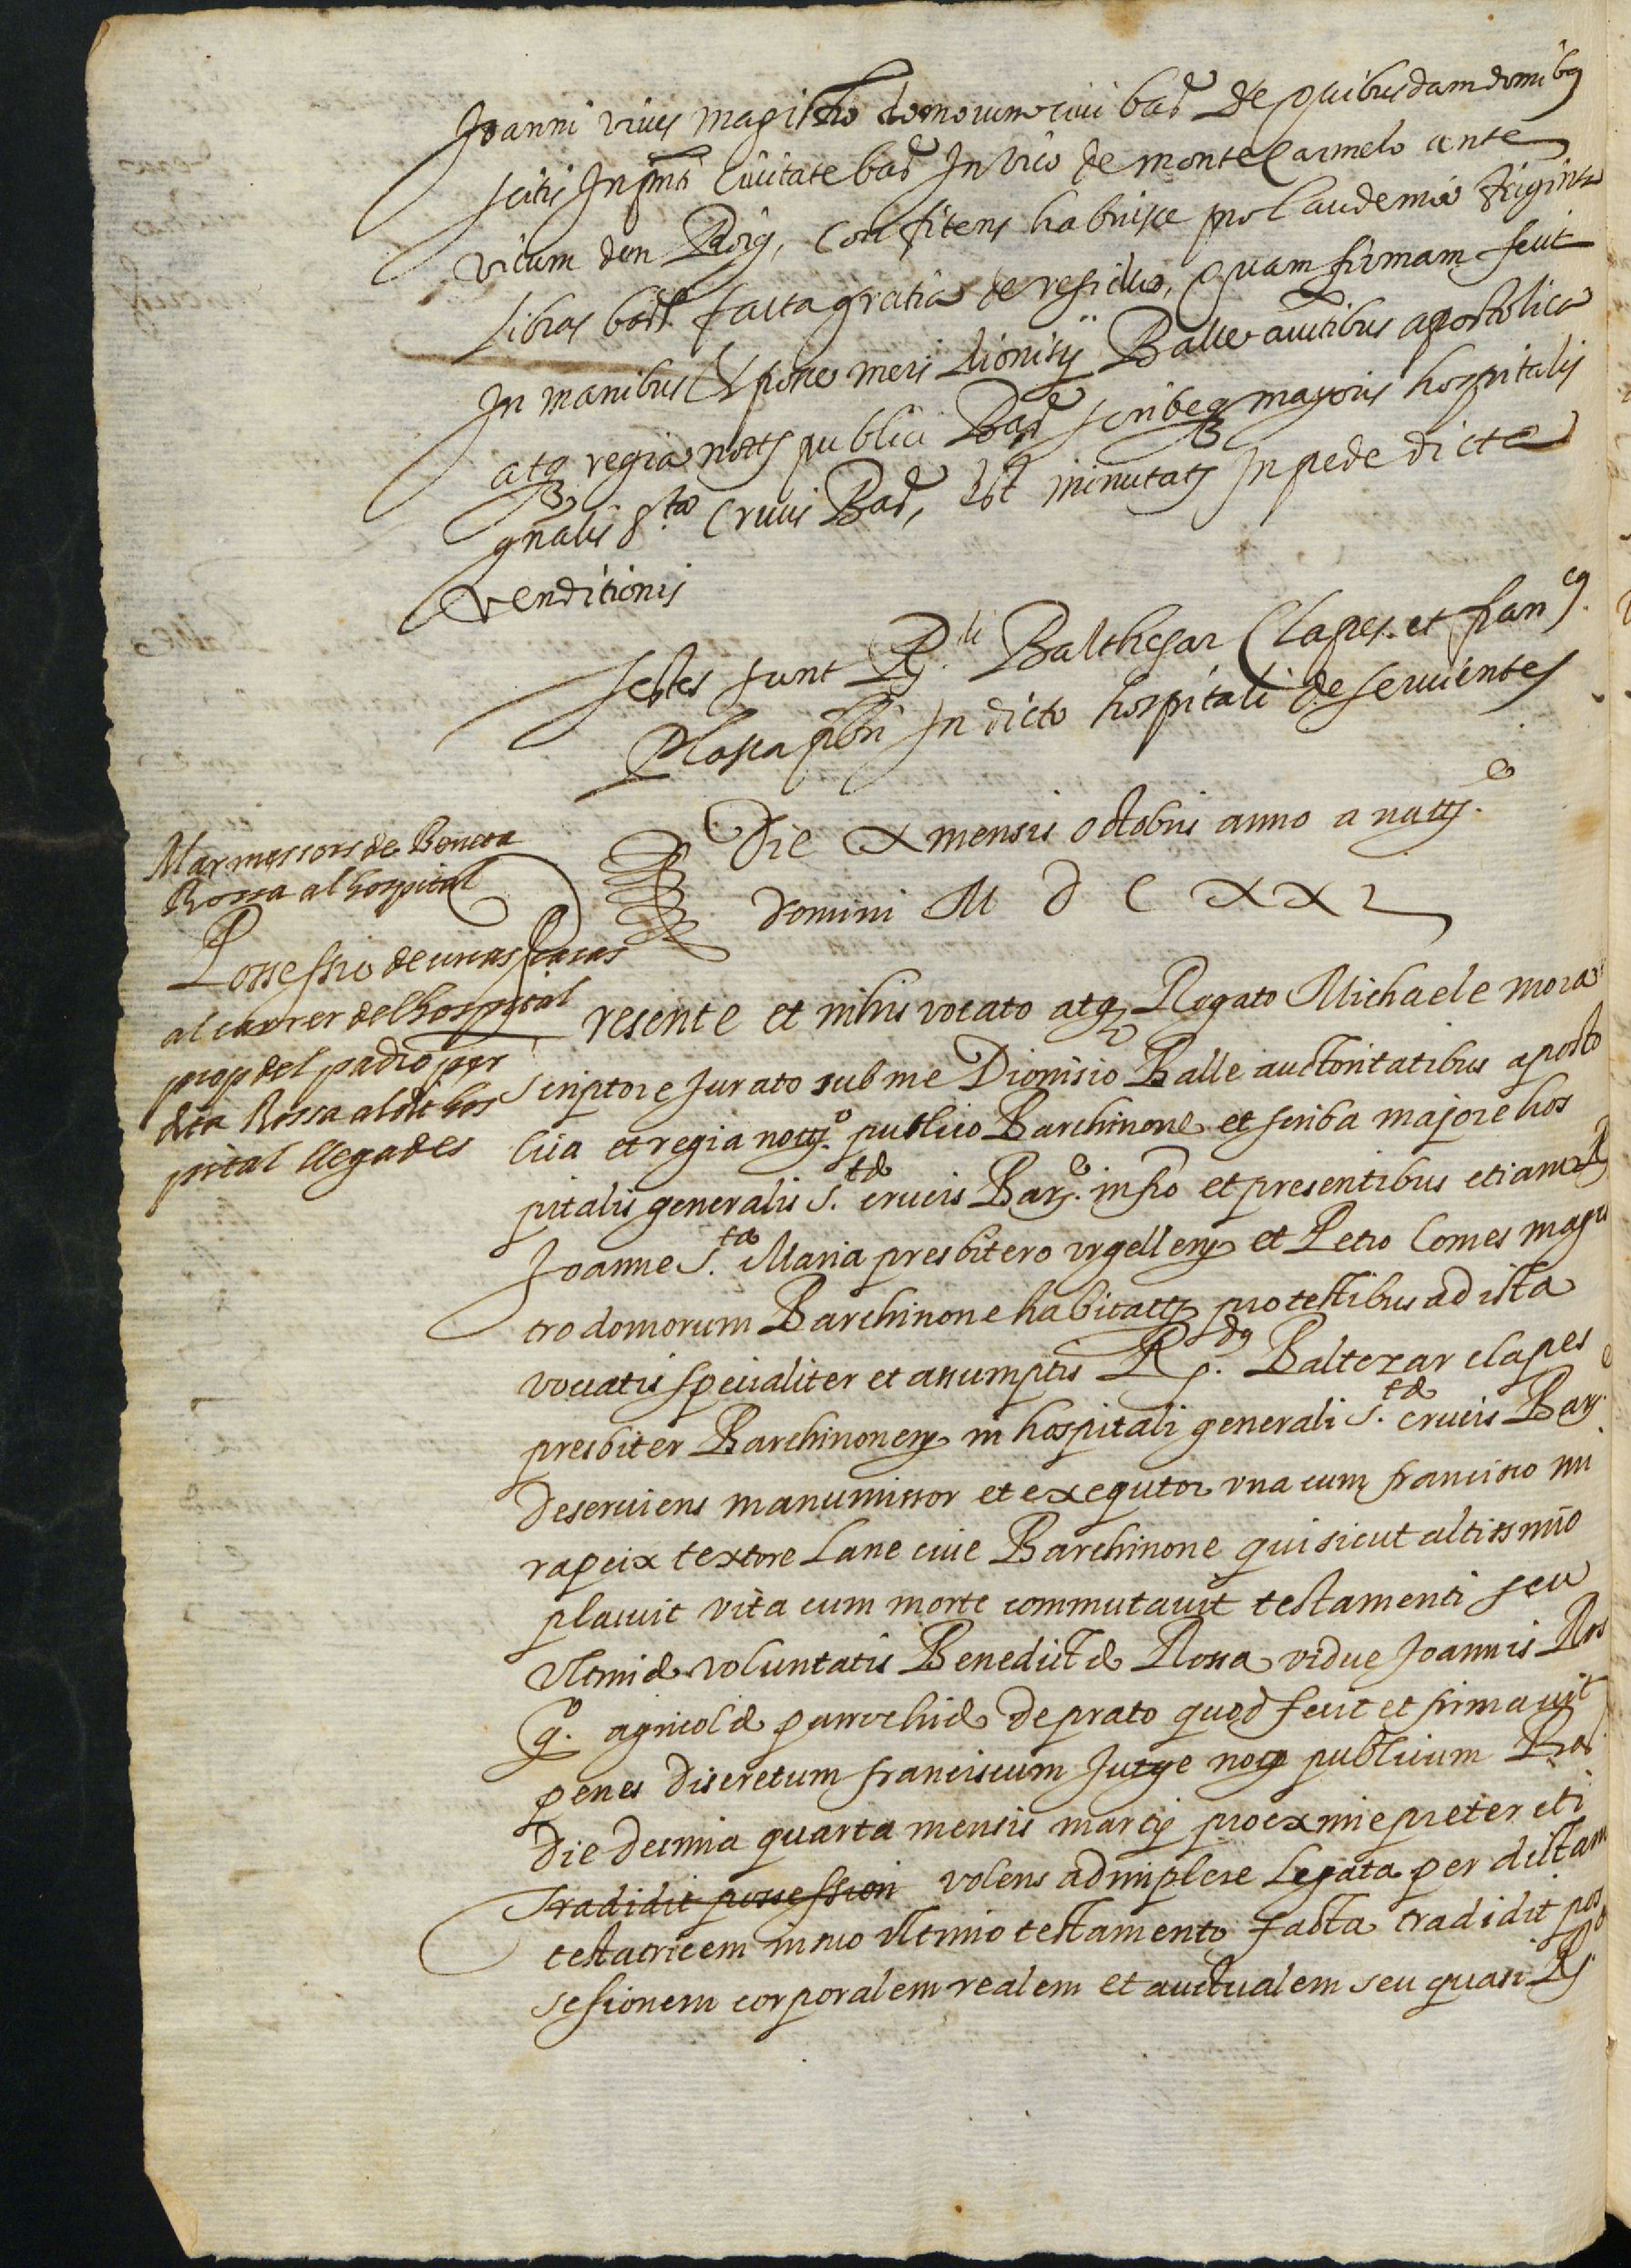 Joanni vives magistro domorum civi bar de quibusdam domibus
scitis In pnti Civitate bar In vico de monte Carmelo ante
vicum den Roig, Confitens habuisse pro laudemio triginta
libras barc facta gratia de residuo, quam firmam fecit
In manibus et posse mei dionisij Balle auctibus apostolica
atq regia notj publici Bar scribeq majoris hospitalis
gnalis Stæ Crucis Bar, Est minutatj In pede dicte
venditionis
testes sunt Rdi Balthesar Clapes et franus
Plassa pbri In dicto hospitali deservientes
Die X mensis octobris anno a natte
Domini M D C XXI
Marmessors de Beneta
Rossa al hospital
Possessio de unas Casas
al carrer del hospital
prop del padro per
dita Rossa al dit hos
pital llegades
Presente et nihis vocato atq Rogato Michaele mora
scriptore Jurato sub me Dionisio Balle auctoritatibus aposto
lica et regia notjo publico Barchinone et scriba majore hos
pitalis generalis S.tæ crucis Bare infro et presentibus etiam Rdo
Joanne S.ta Maria presbitero urgelleng et Petro Comes magis
tro domorum Barchinone habitattj pro testibus ad ista
vocatis specialiter et assumptis Rdus Baltezar clapes
presbiter Barchinoneng in hospitali generali S.tæ crucis Bar
deserviens manumissor et exequtor una cum francisco mi
rapeix textore Lane cive Barchinone qui sicut altissimo
placuit vita cum morte commutavit testamenti seu
ultimæ voluntatis Benedictæ Rossa vidue Joannis Ros
qo agricolæ parrochiæ de prato quod fecit et firmavit
penes discretum franciscum Jutge notj publicum Bar
die decima quarta mensis martij proxime preteriti
tradidit possession volens adimplere Legata per dictam
testatricem in suo ultimo testamento facta tradidit pos
sesionem corporalem realem et auctualem seu quasi Rdo